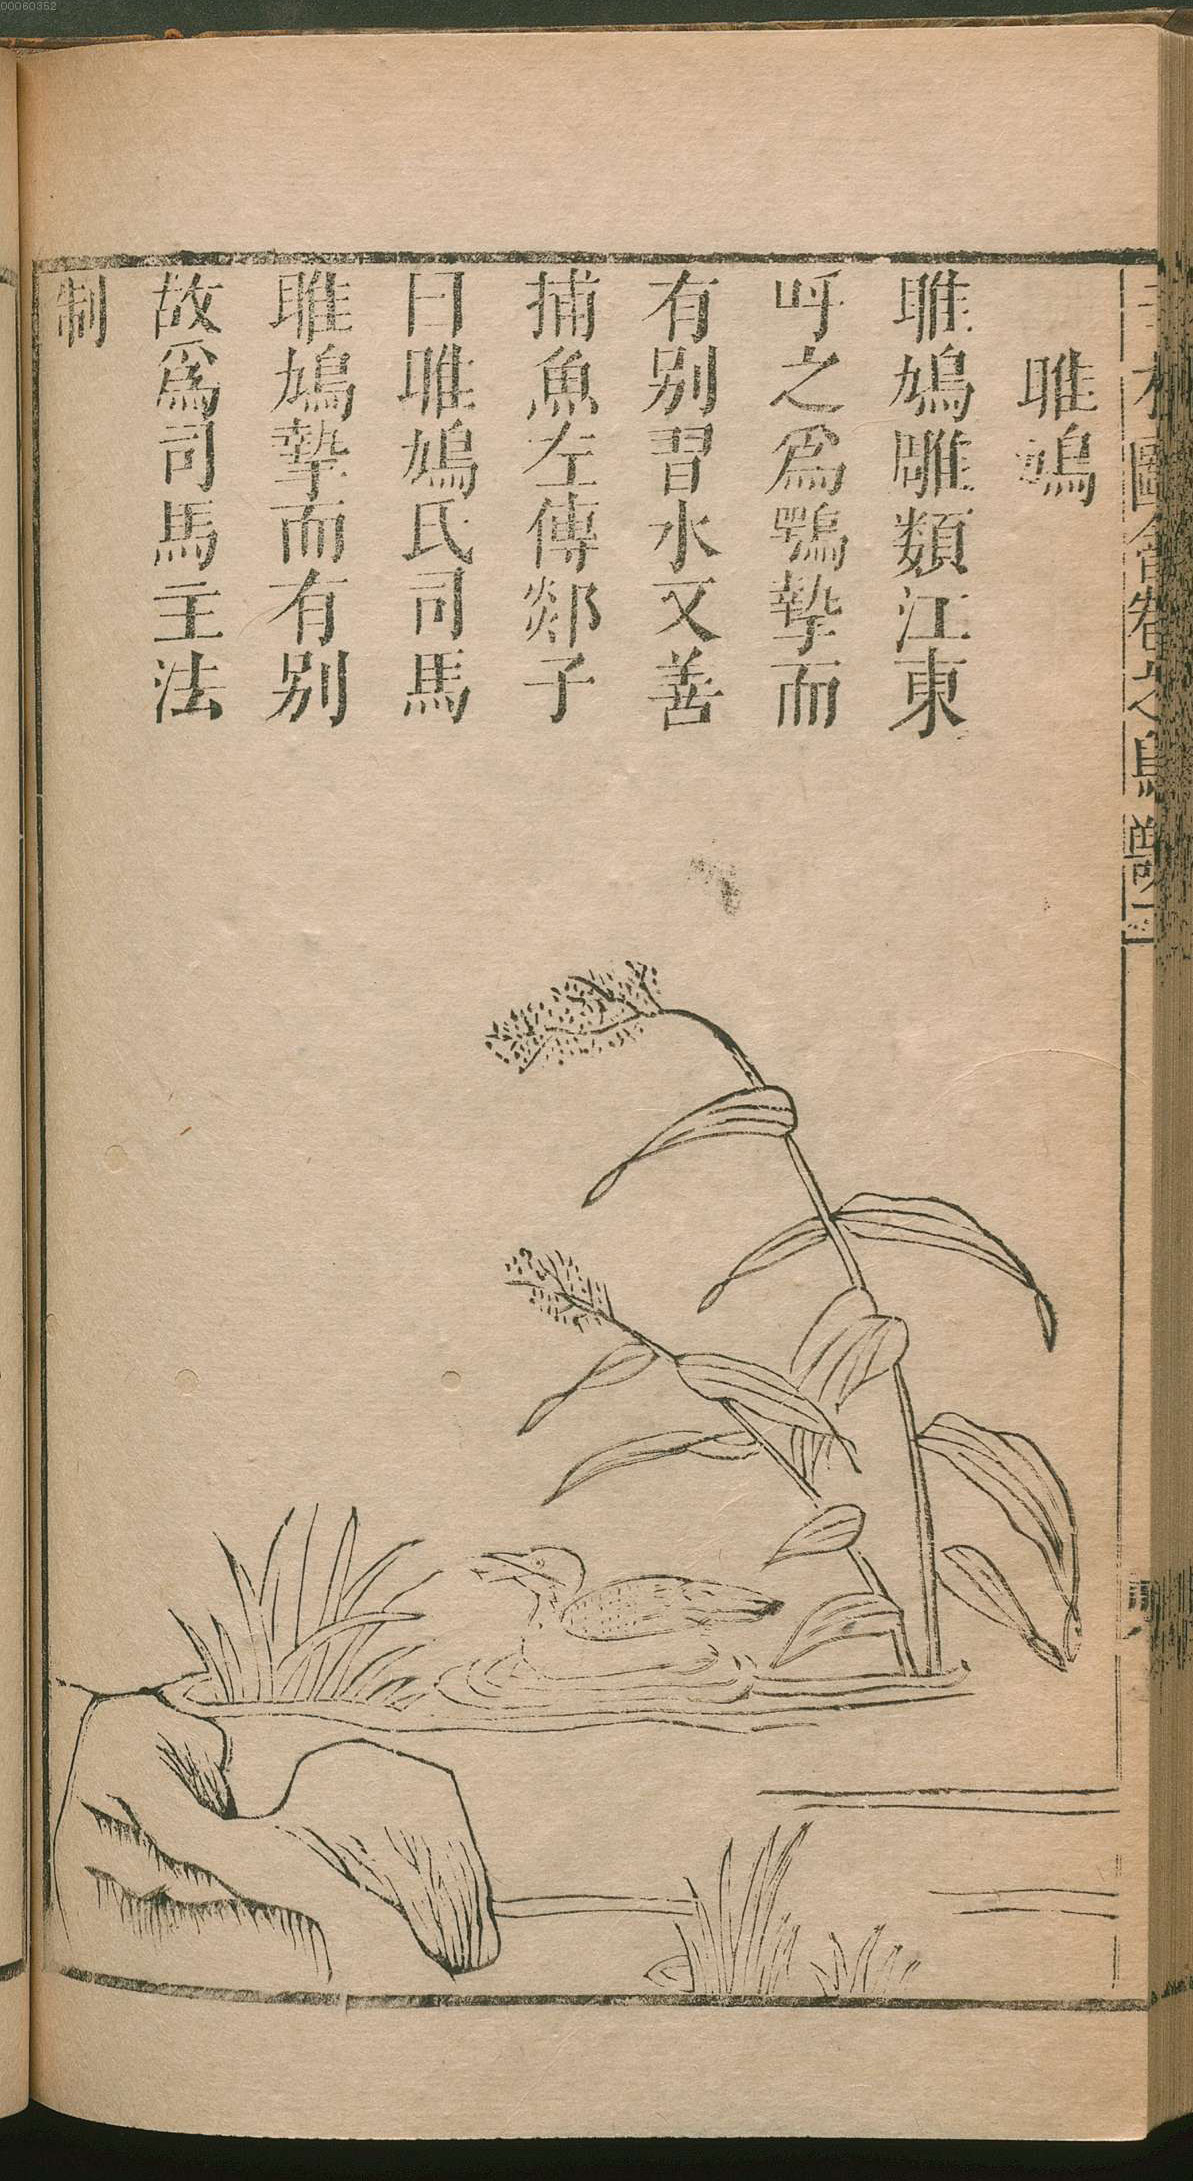 00060352
雎鳩
雎鳩雕類江東
呼之爲鶚摯而
有别習水又善
捕魚左傳郯子
曰雎鳩氏司馬
雎鳩摯而有别
故爲司馬主法
制